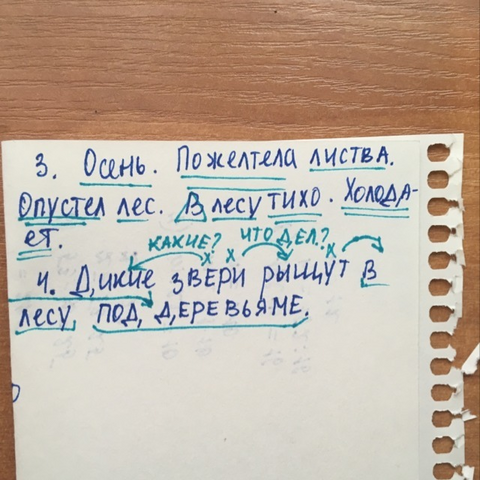 3. Осень. Пожелтела листва.
Опустел лес. В лесу тихо. Холода-
ет.
какие? что дел.?
х х х
4. Дикие звери рыщут в
лесу под деревьяме.